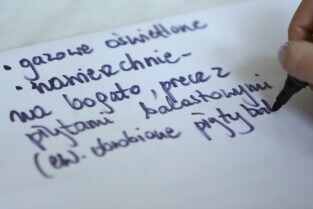 • gazowe oświetlone
• nawierzchnie -
na bogato, precz z
płytami balastowymi
(ew. drobione płyty